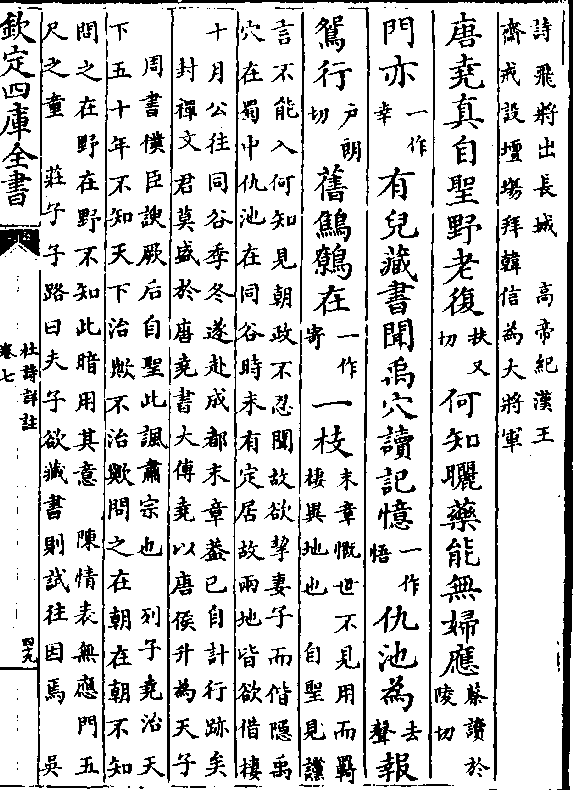 詩飛將出長城　高帝紀漢王
齋戒設壇塲拜韓信為大將軍
唐堯真自聖野老復扶又切何知曬藥能無婦應蔡讀於陵切
門亦一作幸有兒藏書聞禹穴讀記憶一作悟仇池為去聲報
鴛行户朗切舊鷦鷯在一作寄一枝末章慨世不見用而羈棲異地也　自聖見讜
言不能入何知見朝政不忍聞故欲挈妻子而偕隱禹
穴在蜀中仇池在同谷時未有定居故兩地皆欲借棲
十月公往同谷季冬遂赴成都末章葢已自計行跡矣
封禪文君莫盛於唐堯書大傳堯以唐侯升為天子
周書僕臣諛厥后自聖此諷肅宗也　列子堯治天
下五十年不知天下治歟不治歟問之在朝在朝不知
問之在野在野不知此暗用其意　陳情表無應門五
尺之童　莊子子路曰夫子欲藏書則試往因焉　吳
欽定四庫全書
杜詩詳註
卷七
四九